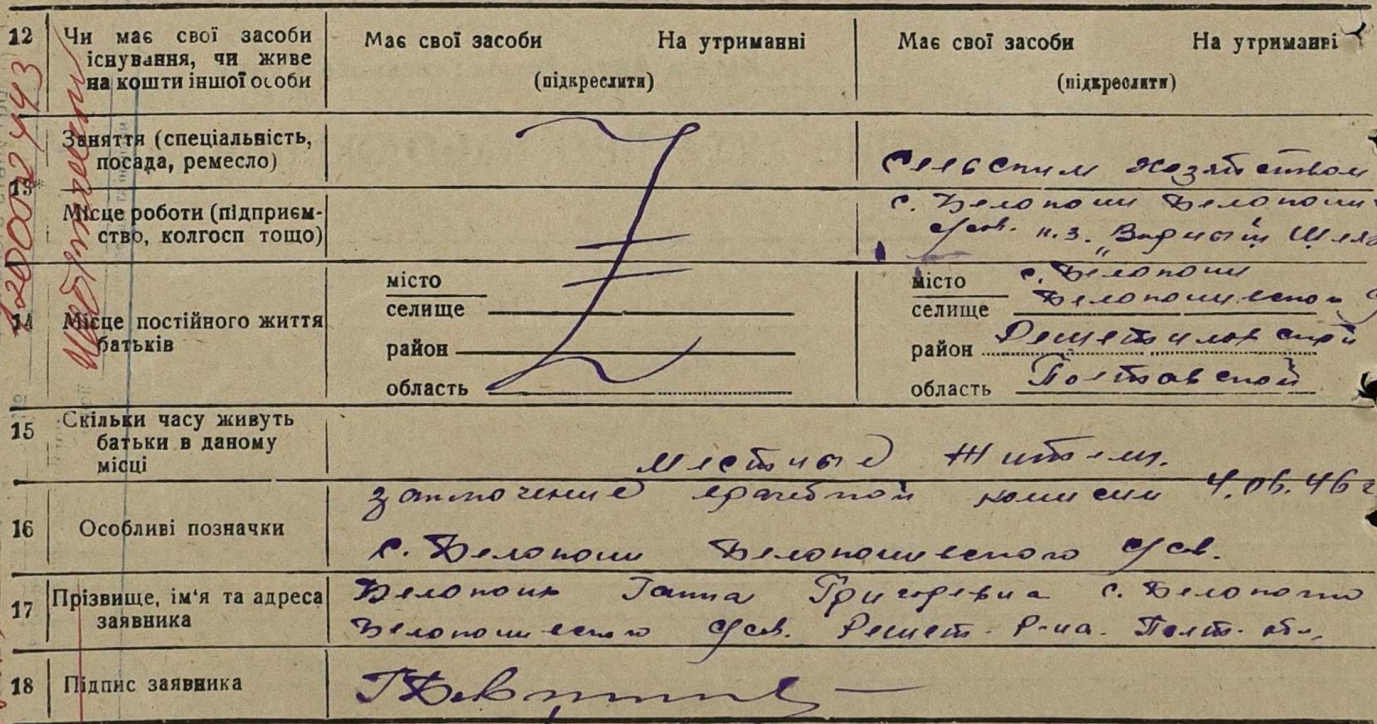 12 Чи має свої засоби існування, чи живе на кошти іншої особи
Має свої засоби На утриманні
(підкреслити)
Має свої засоби На утриманні
(підкреслити)
13 Заняття (спеціальність, посада, ремесло)
Сельским хозяйством
Місце роботи (підприєм-
ство, колгосп тощо)
с. Белокони Белокони
с/сов. к.з. "Видный Шлях
14 Місце постійного життя батьків
місто
селище
район
область
місто с. Белокони
селище Белоконевской
район Решетиловский
область Полтавской
15 Скільки часу живуть
батьки в даному
місці
местные жители.
16 Особливі позначки
заключение врачебной комисии 4.06.46 г
с. Белокони Белоконевского с/сов.
17 Прізвище, ім'я та адреса
заявника
Белоконь Ганна Григоревна с. Белокони
Белоконевского с/сов. Решет. Р-на. Полт. обл.
18 Підпис заявника